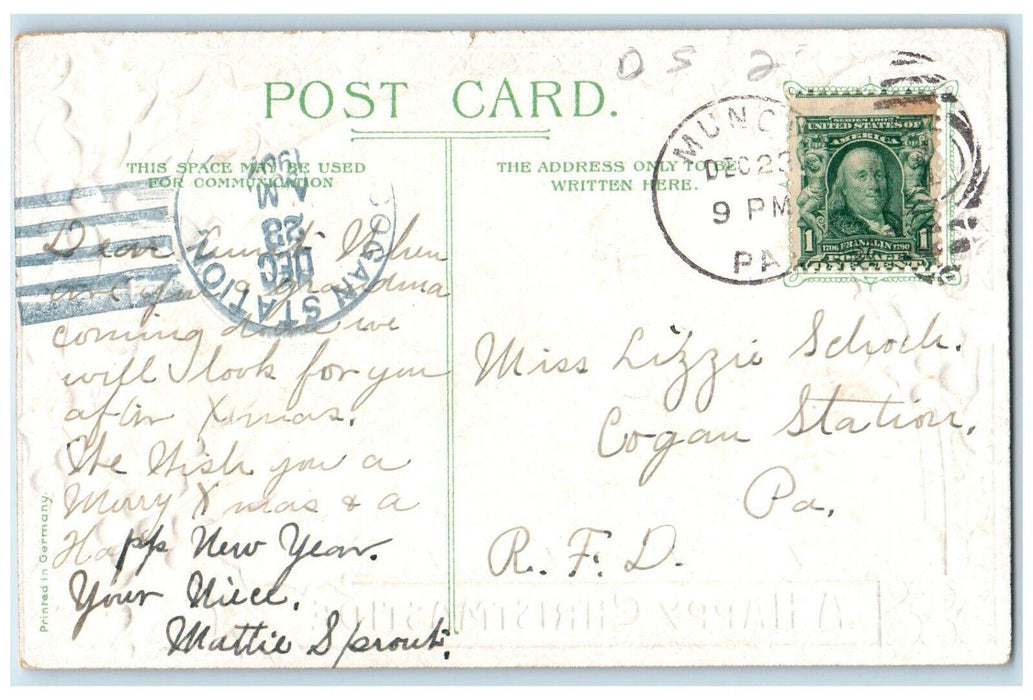 DS 2
POST CARD.
THIS SPACE MAY BE USED
FOR COMMUNICATION
THE ADDRESS ONLY TO BE
WRITTEN HERE.
MUNC
DEC 23
9 PM
PA
SERIES 1902
UNITED STATES OF
AMERICA
1 1706 FRANKLIN 1790 1
POSTAGE
COGAN STATION
DEC
28
A M
Dear Aunt: When
are you & Grandma
coming down we
will look for you
after Xmas.
We Wish you a
Merry Xmas & a
Happ New Year.
Your Niece.
Mattie Sprout.
Miss Lizzie Schoch.
Cogan Station,
Pa.
R. F. D.
Printed in Germany.
A HAPPY CHRISTMASTIDE